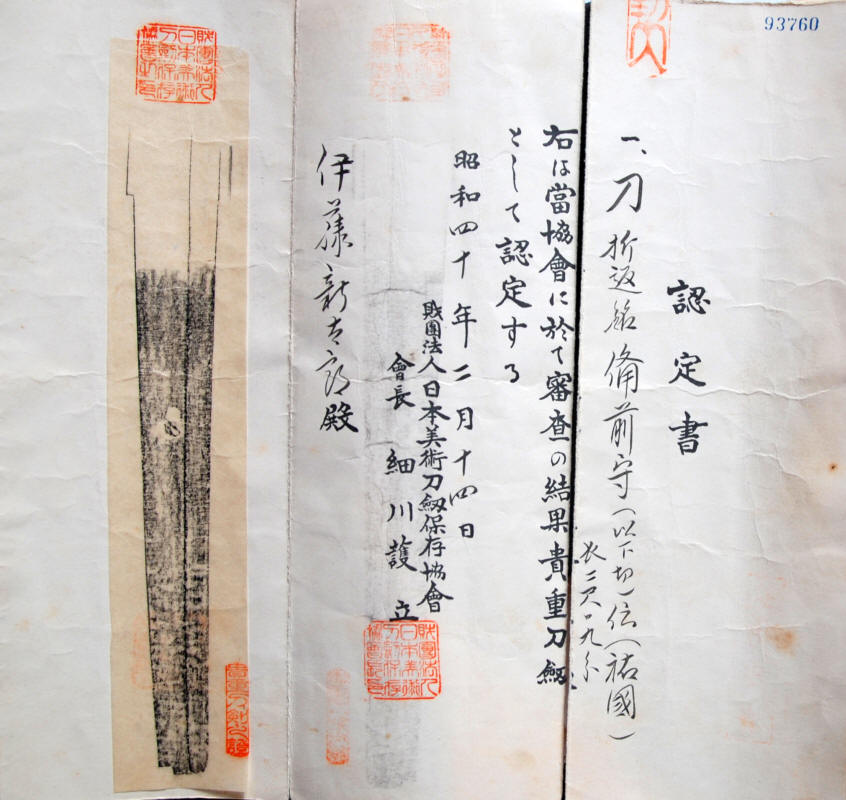 93760
認定書
一、刀 折返銘 備前守(以下切)伝(祐國)
長二尺口九分
右は當協會に於て審査の結果貴重刀劔
として認定する
昭和四十年二月十四日
財團法人日本美術刀劔保存協會
會長 細川護立
伊藤新太郎殿